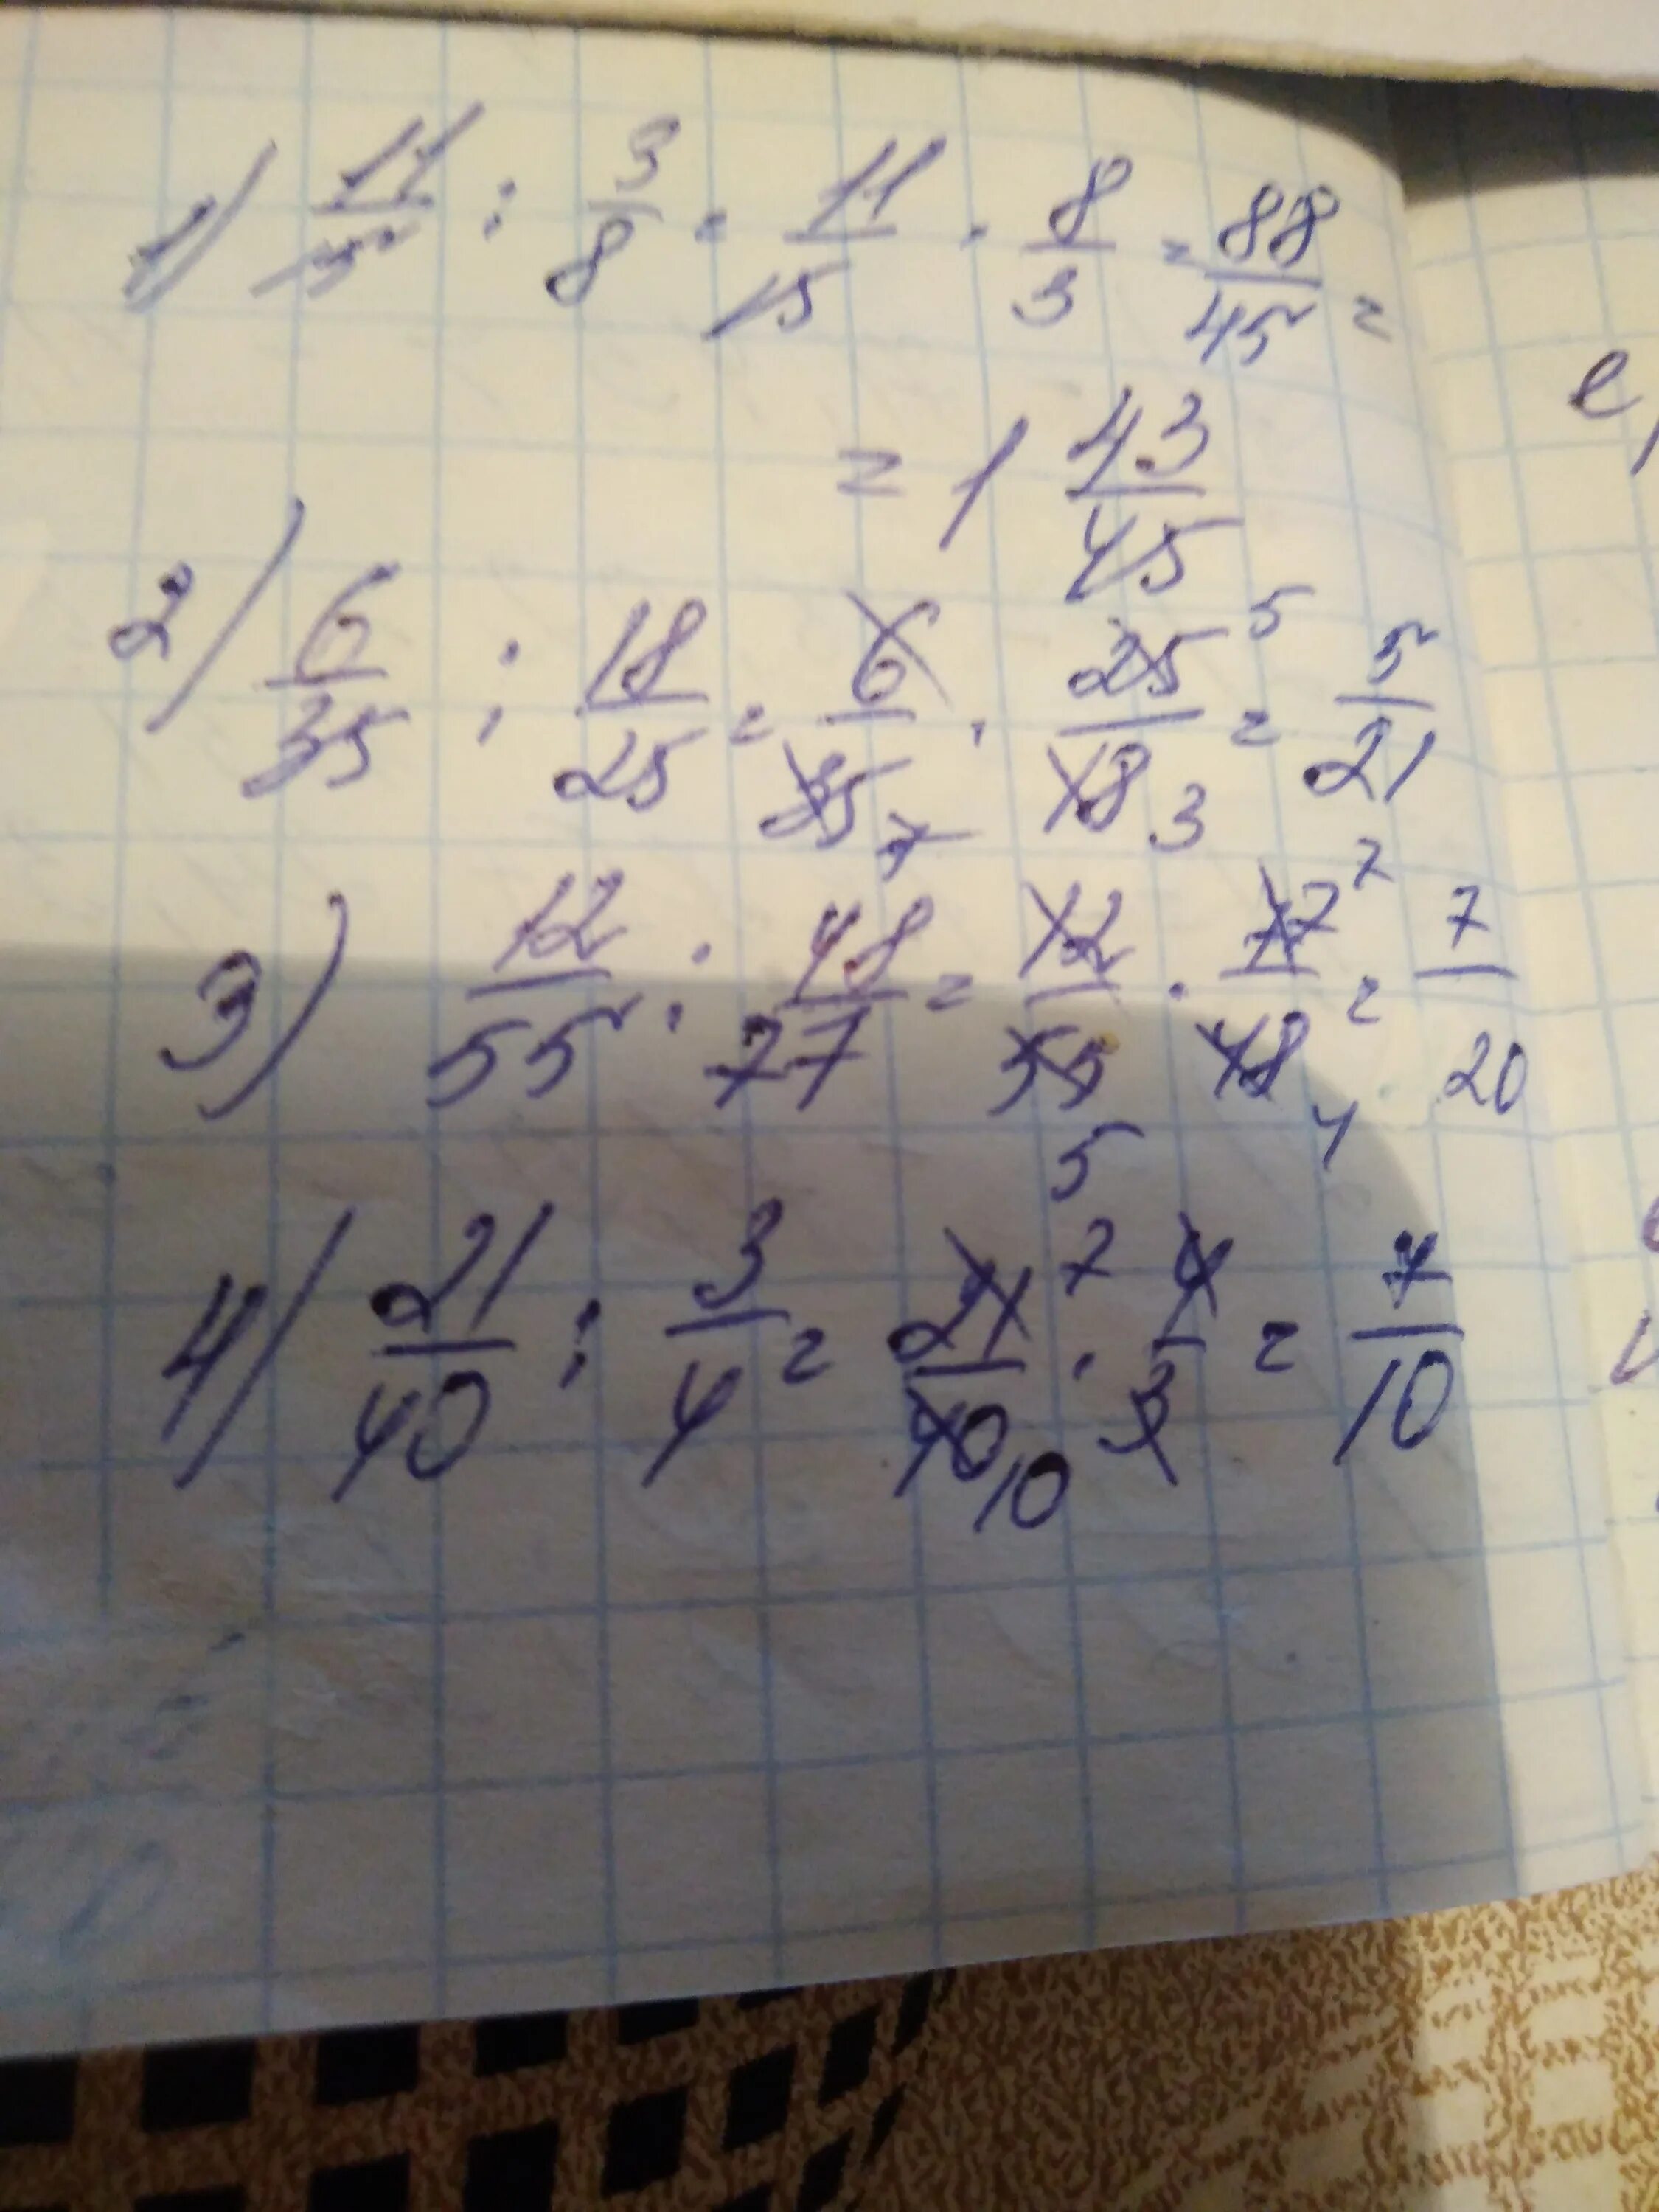 1) 11/15 : 3/8 = 11/15 · 8/3 = 88/45 =
= 1 43/45
2) 6/35 : 18/25 = 6/35 7 · 25 5/18 3 = 5/21
3) 12/55 : 48/77 = 12/55 5 · 77 7/48 4 = 7/20
4) 21/40 : 3/4 = 21 7/40 10 · 4/3 = 7/10
е)